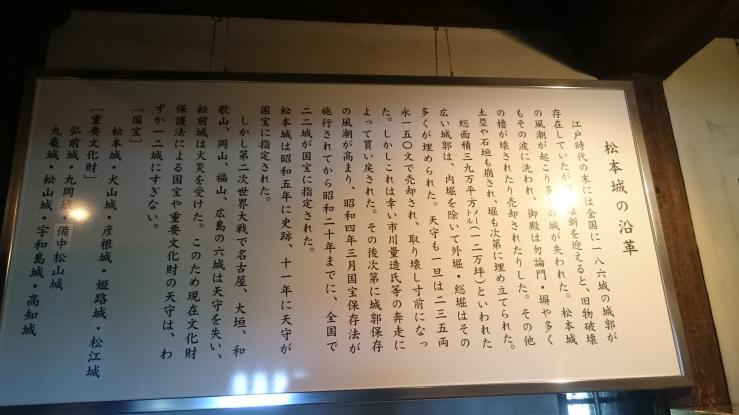 松本城の沿革
江戸時代の末には全国に一八六城の城郭が
存在していたが、維新を迎えると、旧物破壊
の風潮が起こり多くの城が失われた。松本城
もその波に洗われ、御殿は勿論門・塀や多く
の櫓が壊されたり売却されたりした。その他
土塁や石垣も崩され、堀も次第に埋め立てられた。
総面積三九万平方㍍(一二万坪)といわれた
広い城郭は、内堀を除いて外堀・総堀はその
多くが埋められた。天守も一旦は二三五両
永一五〇文で売却され、取り壊し寸前になっ
た。しかしこれは幸い市川量造氏等の奔走に
よって買い戻された。その後次第に城郭保存
の風潮が高まり、昭和四年三月国宝保存法が
施行されてから昭和二十年までに、全国で
二二城が国宝に指定された。
松本城は昭和五年に史跡、十一年に天守が
国宝に指定された。
しかし第二次世界大戦で名古屋、大垣、和
歌山、岡山、福山、広島の六城は天守を失い、
松前城は火災を受けた。このため現在文化財
保護法による国宝や重要文化財の天守は、わ
ずか一二城にすぎない。
[国宝]
松本城・犬山城・彦根城・姫路城・松江城
[重要文化財]
弘前城・丸岡城・備中松山城
丸亀城・松山城・宇和島城・高知城